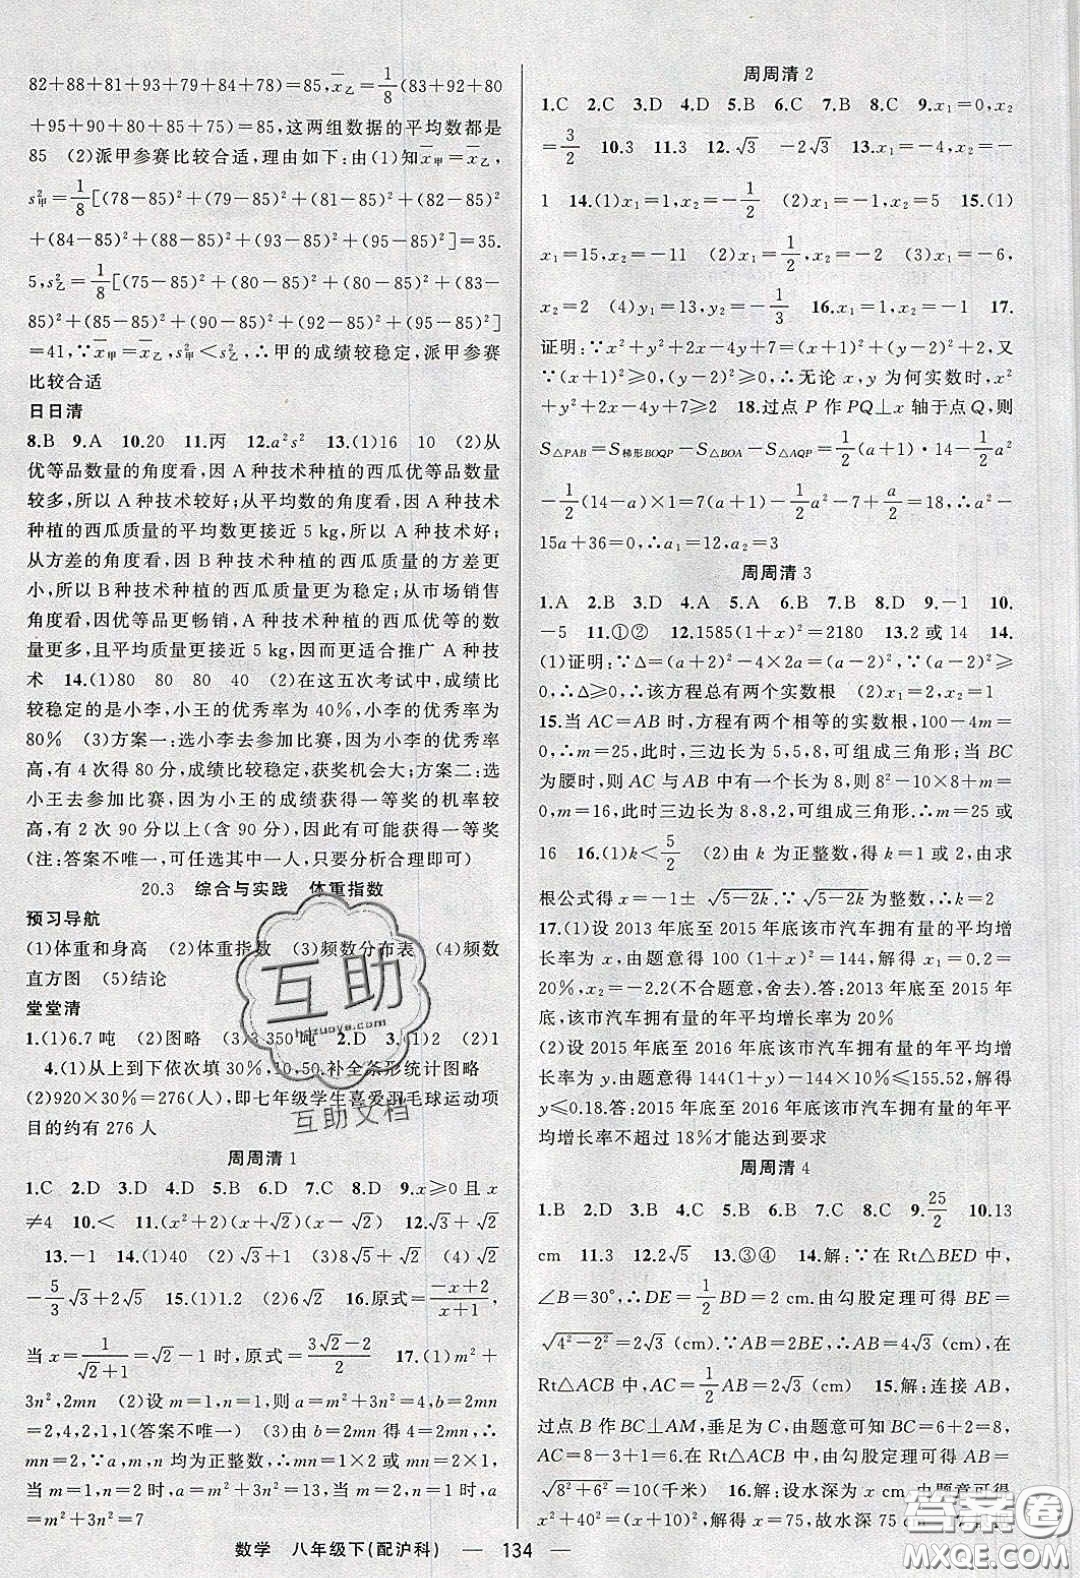 82+88+81+93+79+84+78)=85,x̄乙=1/8(83+92+80
+95+90+80+85+75)=85,这两组数据的平均数都是
85 (2)派甲参赛比较合适,理由如下:由(1)知x̄甲=x̄乙,
s²甲=1/8[(78-85)²+(79-85)²+(81-85)²+(82-85)²
+(84-85)²+(88-85)²+(93-85)²+(95-85)²]=35.
5,s²乙=1/8[(75-85)²+(80-85)²+(80-85)²+(83-
85)²+(85-85)²+(90-85)²+(92-85)²+(95-85)²]
=41,∵x̄甲=x̄乙,s²甲<s²乙,∴甲的成绩较稳定,派甲参赛
比较合适
日日清
8.B 9.A 10.20 11.丙 12.a²s² 13.(1)16 10 (2)从
优等品数量的角度看,因A种技术种植的西瓜优等品数量
较多,所以A种技术较好;从平均数的角度看,因A种技术
种植的西瓜质量的平均数更接近5 kg,所以A种技术好;
从方差的角度看,因B种技术种植的西瓜质量的方差更
小,所以B种技术种植的西瓜质量更为稳定;从市场销售
角度看,因优等品更畅销,A种技术种植的西瓜优等品数
量更多,且平均质量更接近5 kg,因而更适合推广A种技
术 14.(1)80 80 80 40 (2)在这五次考试中,成绩比
较稳定的是小李,小王的优秀率为40%,小李的优秀率为
80% (3)方案一:选小李去参加比赛,因为小李的优秀率
高,有4次得80分,成绩比较稳定,获奖机会大;方案二:选
小王去参加比赛,因为小王的成绩获得一等奖的机率较
高,有2次90分以上(含90分),因此有可能获得一等奖
(注:答案不唯一,可任选其中一人,只要分析合理即可)
20.3 综合与实践 体重指数
预习导航
(1)体重和身高 (2)体重指数 (3)频数分布表 (4)频数
直方图 (5)结论
堂堂清
1.(1)6.7吨 (2)图略 (3)3 350吨 2.D 3.(1)2 (2)1
4.(1)从上到下依次填30%,10,50.补全条形统计图略
(2)920×30%=276(人),即七年级学生喜爱羽毛球运动项
目的约有276人
周周清1
1.C 2.D 3.D 4.D 5.B 6.D 7.C 8.D 9.x≥0且x
≠4 10.< 11.(x²+2)(x+√2)(x-√2) 12.√3+√2
13.-1 14.(1)40 (2)√3+1 (3)8√5+√3 (4)√2
-5/3√3+2√5 15.(1)1.2 (2)6√2 16.原式=(-x+2)/(x+1),
当x=1/(√2+1)=√2-1时,原式=(3√2-2)/2 17.(1)m²+
3n²,2mn (2)设m=1,n=1,则a=m²+3n²=4,b=2mn
=2,4,2,1,1(答案不唯一) (3)由b=2mn,得4=2mn,mn
=2,∵a,m,n均为正整数,∴m=1,n=2或m=2,n=1,
当m=1,n=2时,a=m²+3n²=13;当m=2,n=1时,a=
m²+3n²=7
周周清2
1.C 2.C 3.D 4.D 5.B 6.C 7.B 8.C 9.x₁=0,x₂
=3/2 10.3 11.3 12.√3 -2√3 13.x₁=-4,x₂=-
1 14.(1)x₁=1,x₂=-1/2 (2)x₁=-1,x₂=5 15.(1)
x₁=15,x₂=-11 (2)x₁=1/2,x₂=-1/2 (3)x₁=-6,
x₂=2 (4)y₁=13,y₂=-1/3 16.x₁=1,x₂=-1 17.
证明:∵x²+y²+2x-4y+7=(x+1)²+(y-2)²+2,又
∵(x+1)²≥0,(y-2)²≥0,∴无论x,y为何实数时,x²
+y²+2x-4y+7≥2 18.过点P作PQ⊥x轴于点Q,则
S△PAB=S梯形BOQP-S△BOA-S△AQP=1/2(a+1)·1/2a²-
1/2(14-a)×1=7(a+1)-1/2a²-7+a/2=18,∴a²-
15a+36=0,∴a₁=12,a₂=3
周周清3
1.A 2.B 3.D 4.A 5.A 6.B 7.B 8.D 9.-1 10.
-5 11.①② 12.1585(1+x)²=2180 13.2或14 14.
(1)证明:∵Δ=(a+2)²-4×2a=(a-2)²,∵(a-2)²≥
0,∴Δ≥0,∴该方程总有两个实数根 (2)x₁=2,x₂=1
15.当AC=AB时,方程有两个相等的实数根,100-4m=
0,∴m=25,此时,三边长为5,5,8,可组成三角形;当BC
为腰时,则AC与AB中有一个长为8,则8²-10×8+m=
0,m=16,此时三边长为8,8,2,可组成三角形.∴m=25或
16 16.(1)k<5/2 (2)由k为正整数,得k=1或2,由求
根公式得x=-1±√(5-2k).∵√(5-2k)为整数,∴k=2
17.(1)设2013年底至2015年底该市汽车拥有量的年平均增长
率为x,由题意得100(1+x)²=144,解得x₁=0.2=
20%,x₂=-2.2(不合题意,舍去).答:2013年底至2015年
底,该市汽车拥有量的年平均增长率为20%
(2)设2015年底至2016年底该市汽车拥有量的年平均增
长率为y,由题意得144(1+y)-144×10%≤155.52,解得
y≤0.18.答:2015年底至2016年底该市汽车拥有量的年平
均增长率不超过18%才能达到要求
周周清4
1.B 2.D 3.B 4.C 5.B 6.D 7.C 8.C 9.25/2 10.13
cm 11.3 12.2√5 13.③④ 14.解:∵在Rt△BED中,
∠B=30°,∴DE=1/2BD=2 cm.由勾股定理可得BE=
√(4²-2²)=2√3(cm).∵AB=2BE,∴AB=4√3(cm),在
Rt△ACB中,AC=1/2AB=2√3(cm) 15.解:连接AB,
过点B作BC⊥AM,垂足为C,由题意可知BC=6+2=8,
AC=8-3+1=6,在Rt△ACB中,由勾股定理可得AB=
√(8²+6²)=10(千米) 16.解:设水深为x cm,由题意可得
x²+40²=(x+10)²,解得x=75,故水深75 cm
数学 八年级下(配沪科) — 134 —
互助
hdzuoye.com
互助文档
答案圈
MXQE.COM